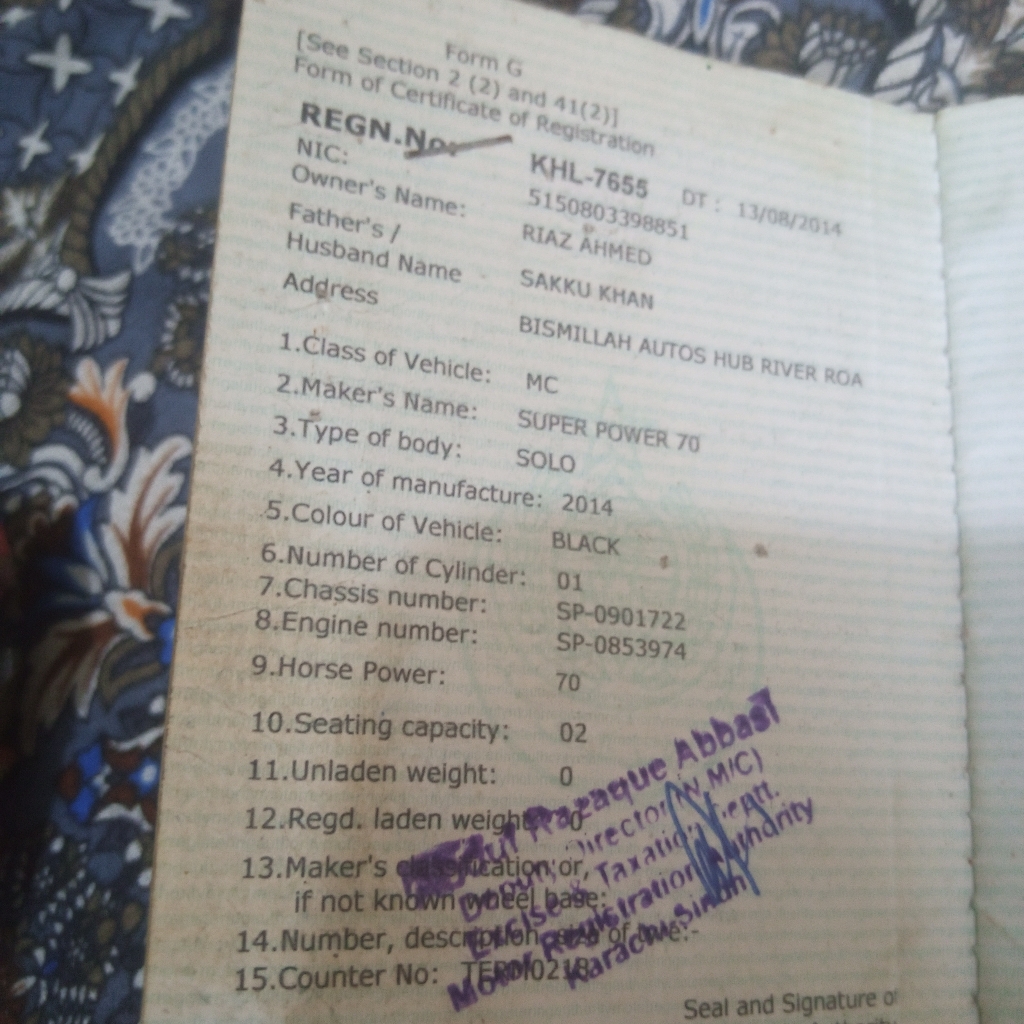 Form G
[See Section 2 (2) and 41(2)]
Form of Certificate of Registration
REGN.No: KHL-7655 DT : 13/08/2014
NIC: 5150803398851
Owner's Name: RIAZ AHMED
Father's /
Husband Name SAKKU KHAN
Address BISMILLAH AUTOS HUB RIVER ROA
1.Class of Vehicle: MC
2.Maker's Name: SUPER POWER 70
3.Type of body: SOLO
4.Year of manufacture: 2014
5.Colour of Vehicle: BLACK
6.Number of Cylinder: 01
7.Chassis number: SP-0901722
8.Engine number: SP-0853974
9.Horse Power: 70
10.Seating capacity: 02
11.Unladen weight: 0
12.Regd. laden weight 0
13.Maker's classification or,
if not known wheel base:
14.Number, description, size of tyre:-
15.Counter No:
Razaque Abbasi
Deputy Director (W.M/C)
Excise & Taxation Deptt.
Motor Registration Authority
Karachi-Sindh
Seal and Signature of